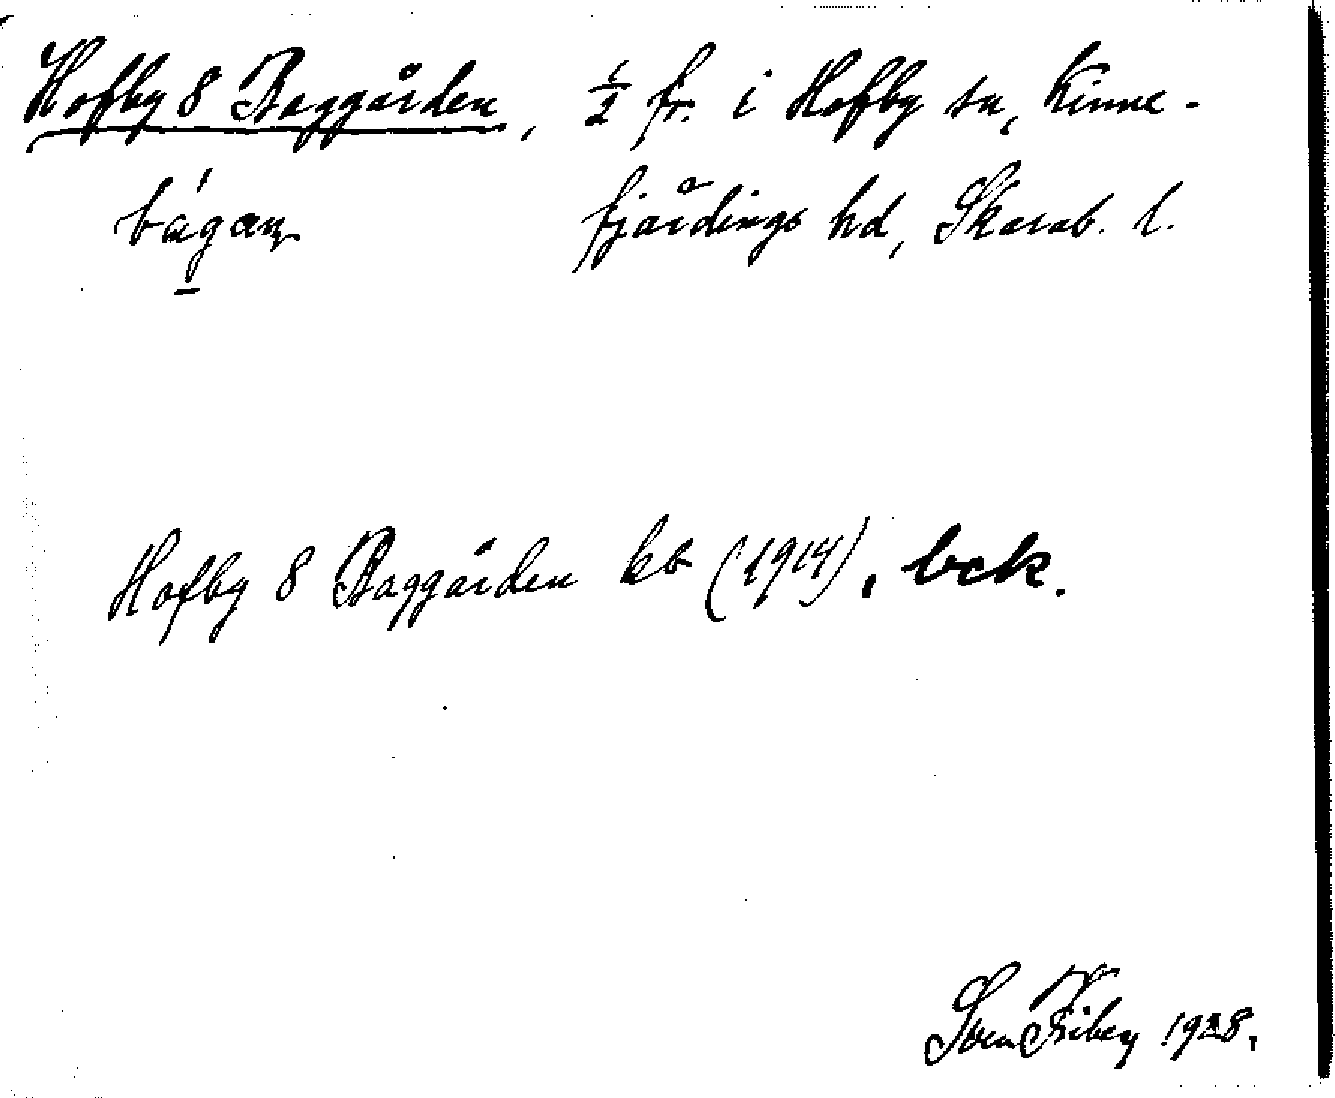 Hofby 8 Baggården, 1/2 fr. i Hofby sn, Kinne-
bágaɳ fjärdings hd, Skarab. l.
Hofby 8 Baggården kb (1914), bck.
Sven 1928.